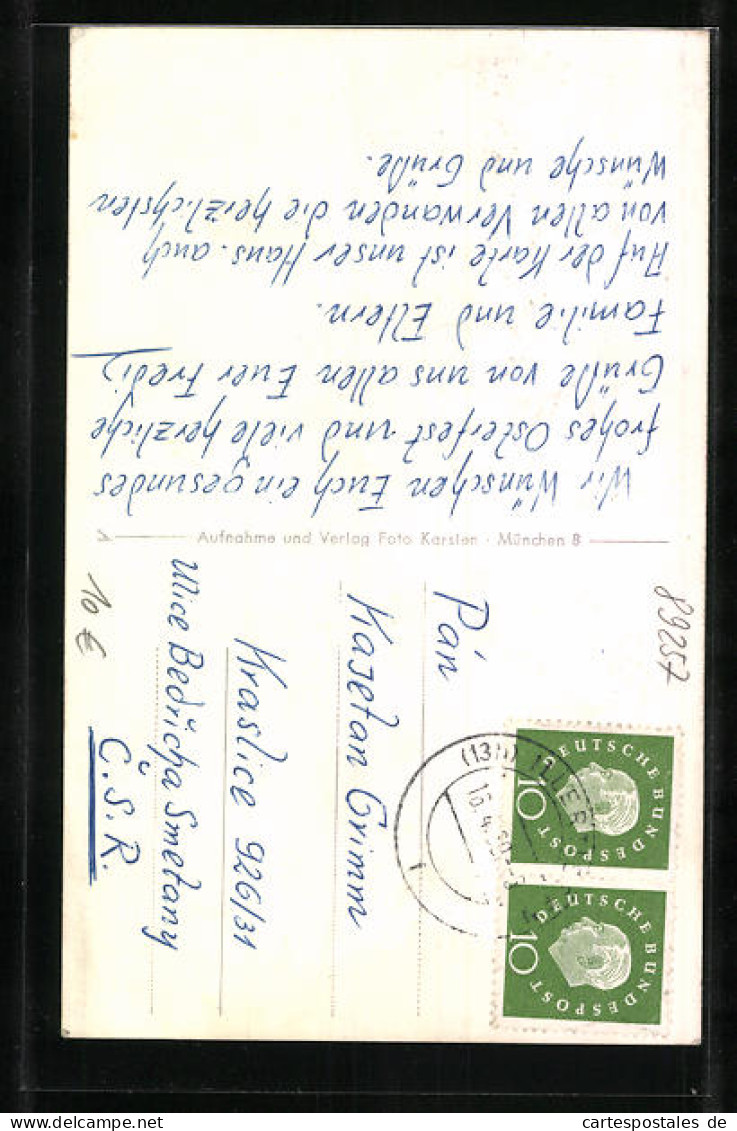 Wir Wünschen Euch ein gesundes
frohes Osterfest und viele herzliche
Grüße von uns allen Euer Fredi
Familie und Eltern.
Auf der Karte ist unser Haus. auch
von allen Verwanden die herzlichsten
Wünsche und Grüße.
Aufnahme und Verlag Foto Karsten · München 8
Pán
Kajetan Grimm
Kraslice 926/31
Ulice Bedřicha Smetany
Č.S.R.
10 €
89257
DEUTSCHE BUNDESPOST
10
DEUTSCHE BUNDESPOST
10
(13b) ILLER
16.4.60
cartespostales de